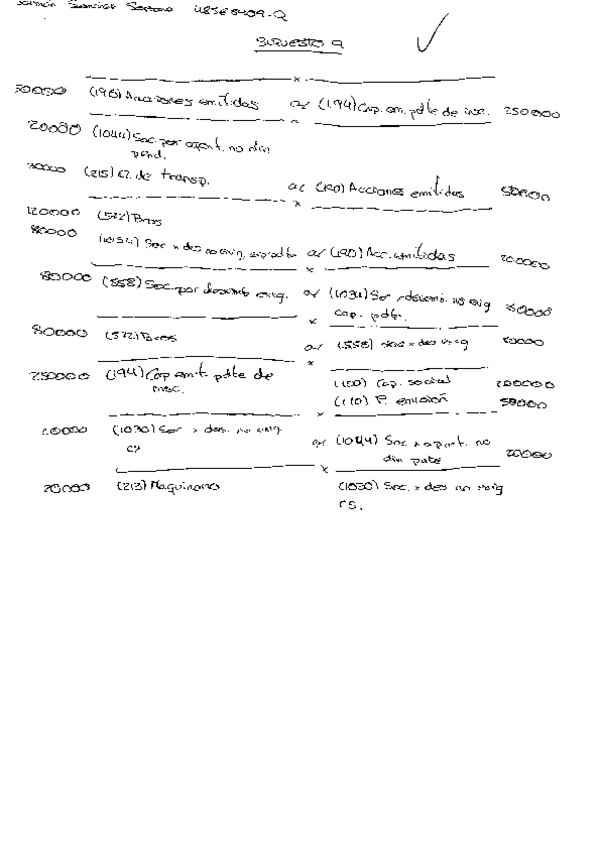 Sánchez Serrano
SUPUESTO 9
(190) Acciones emitidas a/ (194) Cap. em. pdte de insc. 250000
20000 (1044) Soc. por aport. no din
pend.
30000 (215) de transp. a/ (190) Acciones emitidas 50000
120000 (572) Bcos
80000 Soc x des no exig. a/ (190) Acc. emitidas 200000
80000 (558) Soc. por desemb exig. a/ (1034) Soc x desemb. no exig
cap. pdte.
80000 (572) Bcos a/ (558) Soc x des exig 80000
250000 (194) Cap emit. pdte de
insc.
(100) Cap. social 200000
(110) P. emisión 50000
20000 (1030) Soc x des. no exig a/ (1044) Soc x aport. no 20000
din pdte
20000 (213) Maquinaria (1030) Soc. x des no exig